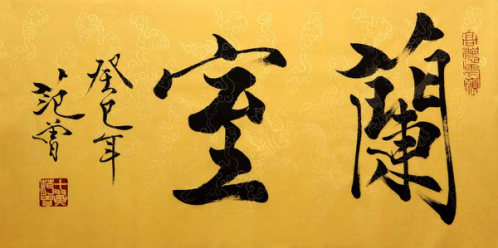 蘭室
癸巳年
范曾